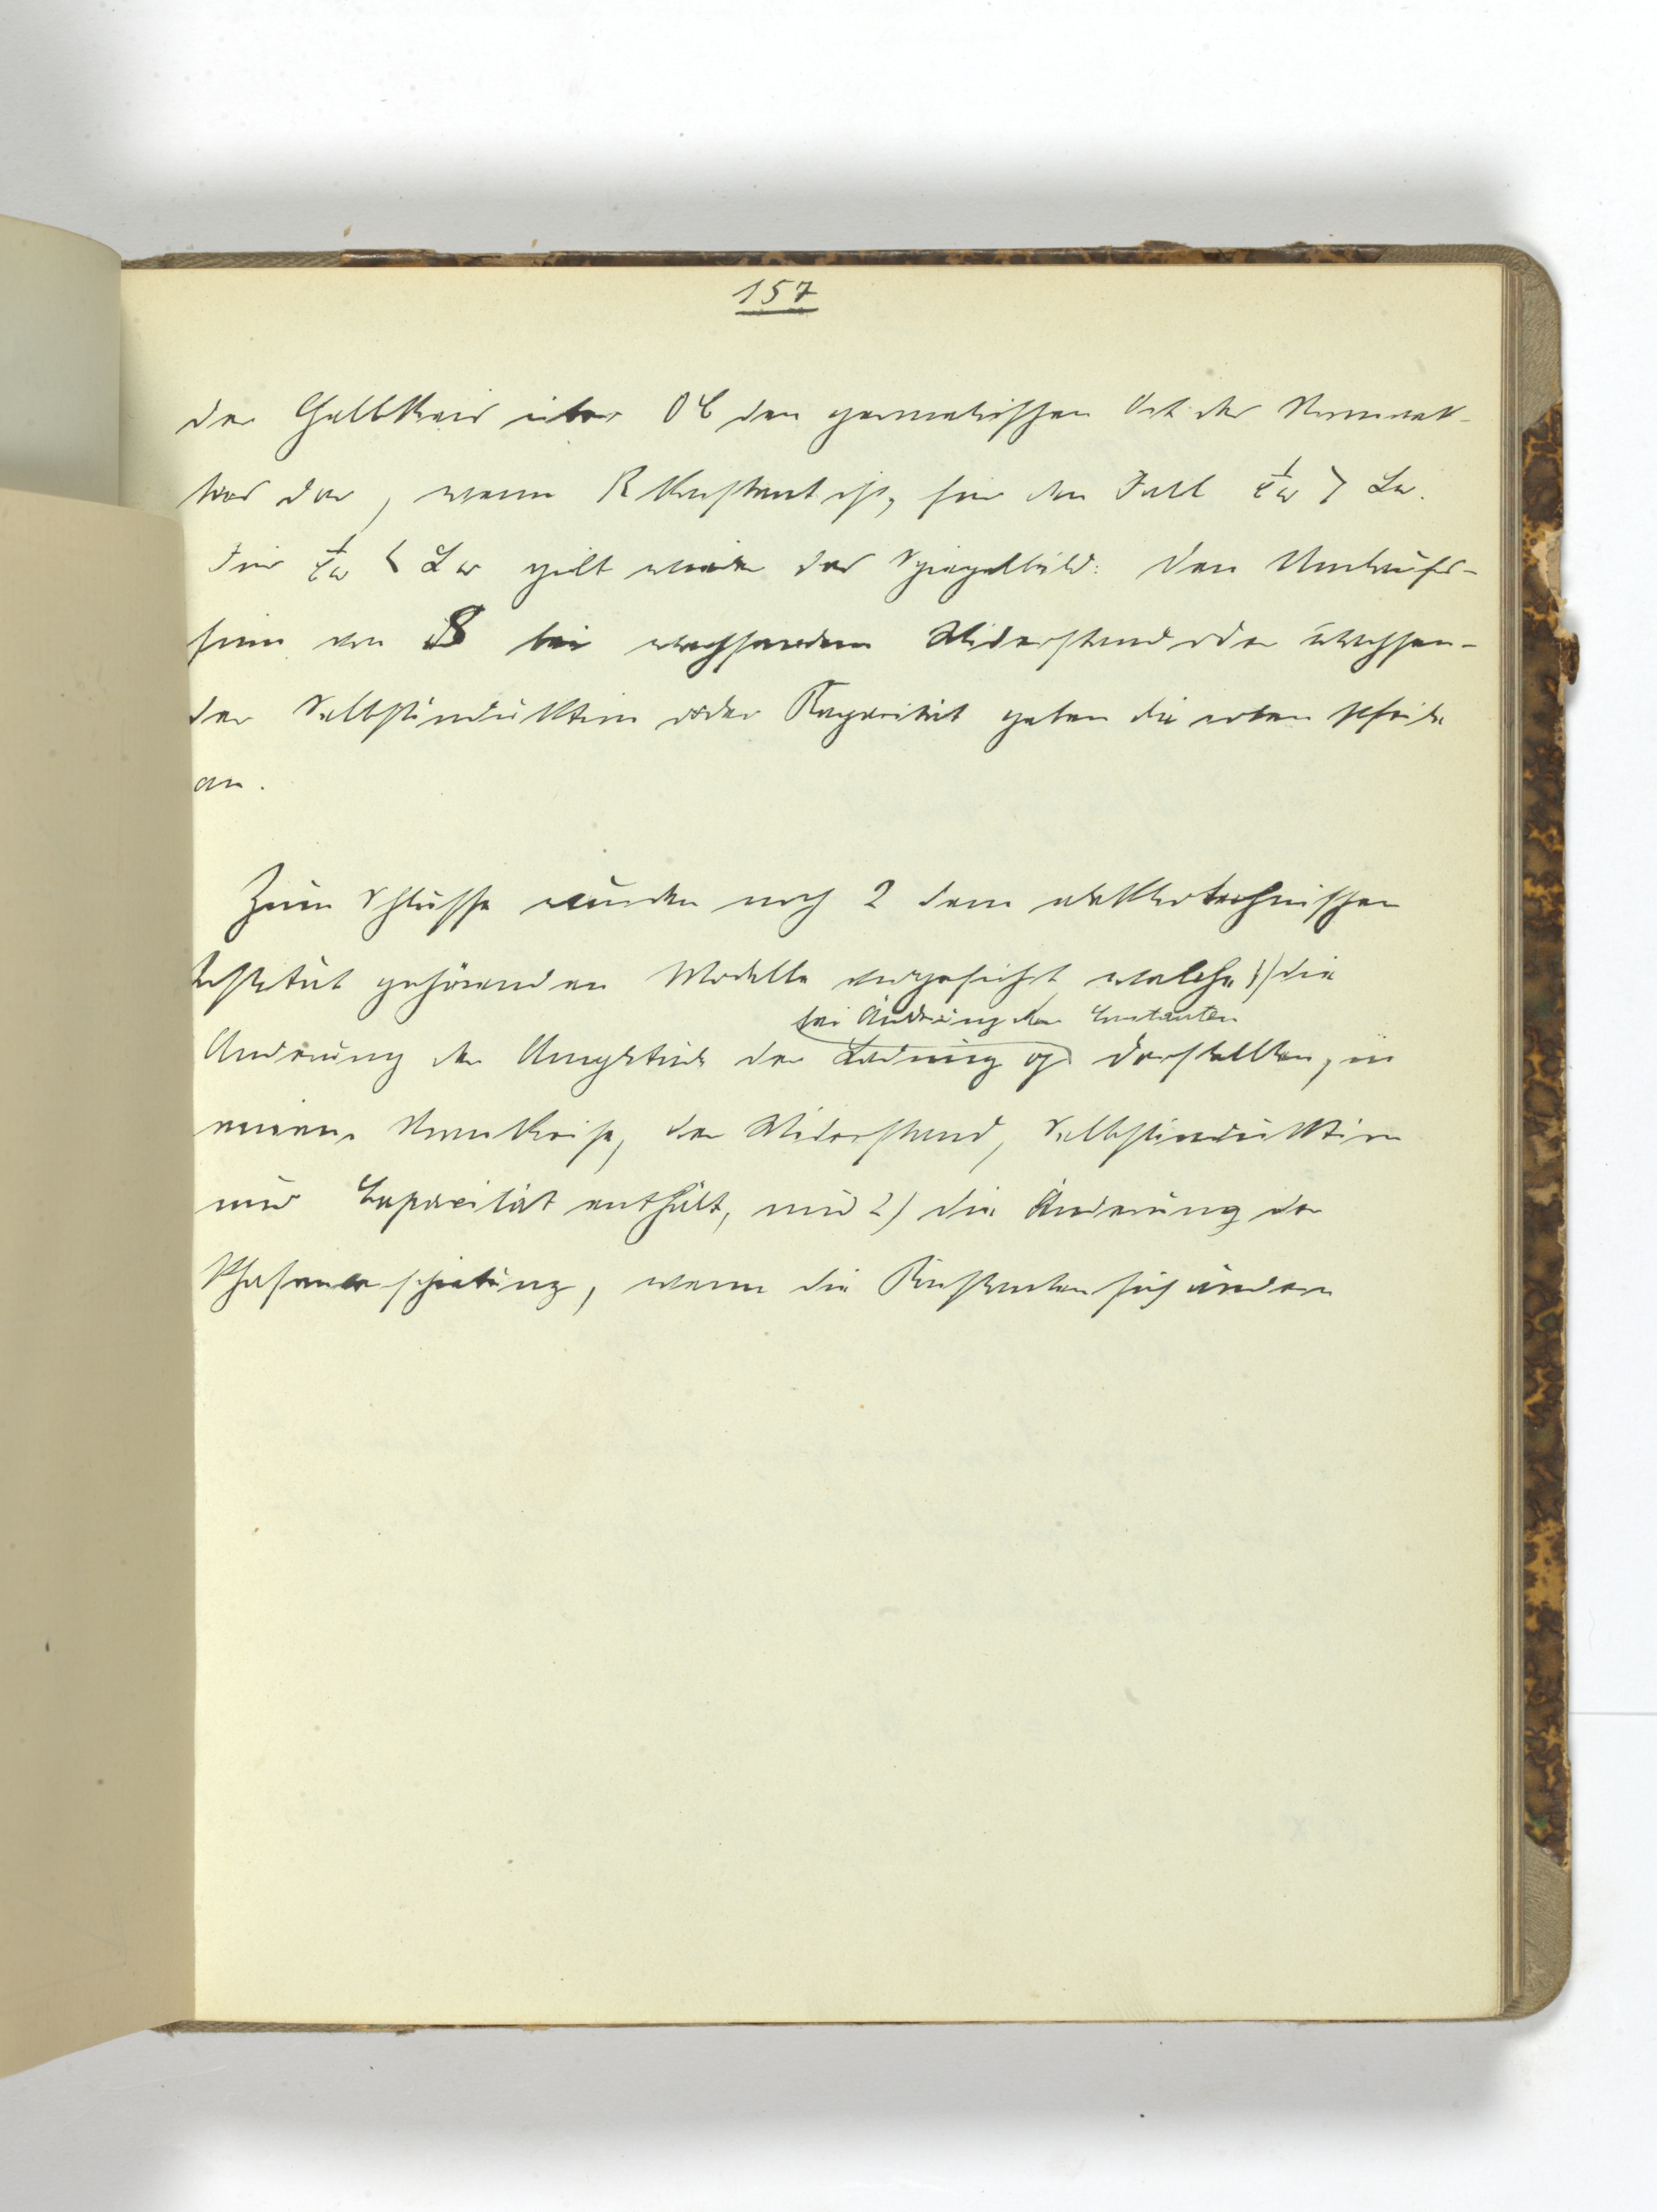 157
der Halbkreis über OC den geometrischen Ort der Stromvek-
tors dar, wenn R konstant ist, für den Fall 1/Cω > Lω.
Für 1/Cω < Lω gilt wieder das Spiegelbild. Den Umlaufs-
sinn von bei wachsendem Widerstand oder wachsen-
der Selbstinduktion oder Kapacität geben die roten Pfeile
an.
Zum Schlusse wurden noch 2 dem elektrotechnischen
Institut gehörenden Modelle vorgeführt, welche 1) die
bei Änderung der Constanten
Änderung der Amplitude der Ladung darstellten, in
einem Stromkreise, der Widerstand, Selbstinduktion
und Capacität enthält, und 2) die Änderung der
Phasenverschiebung, wenn die Konstanten sich ändern